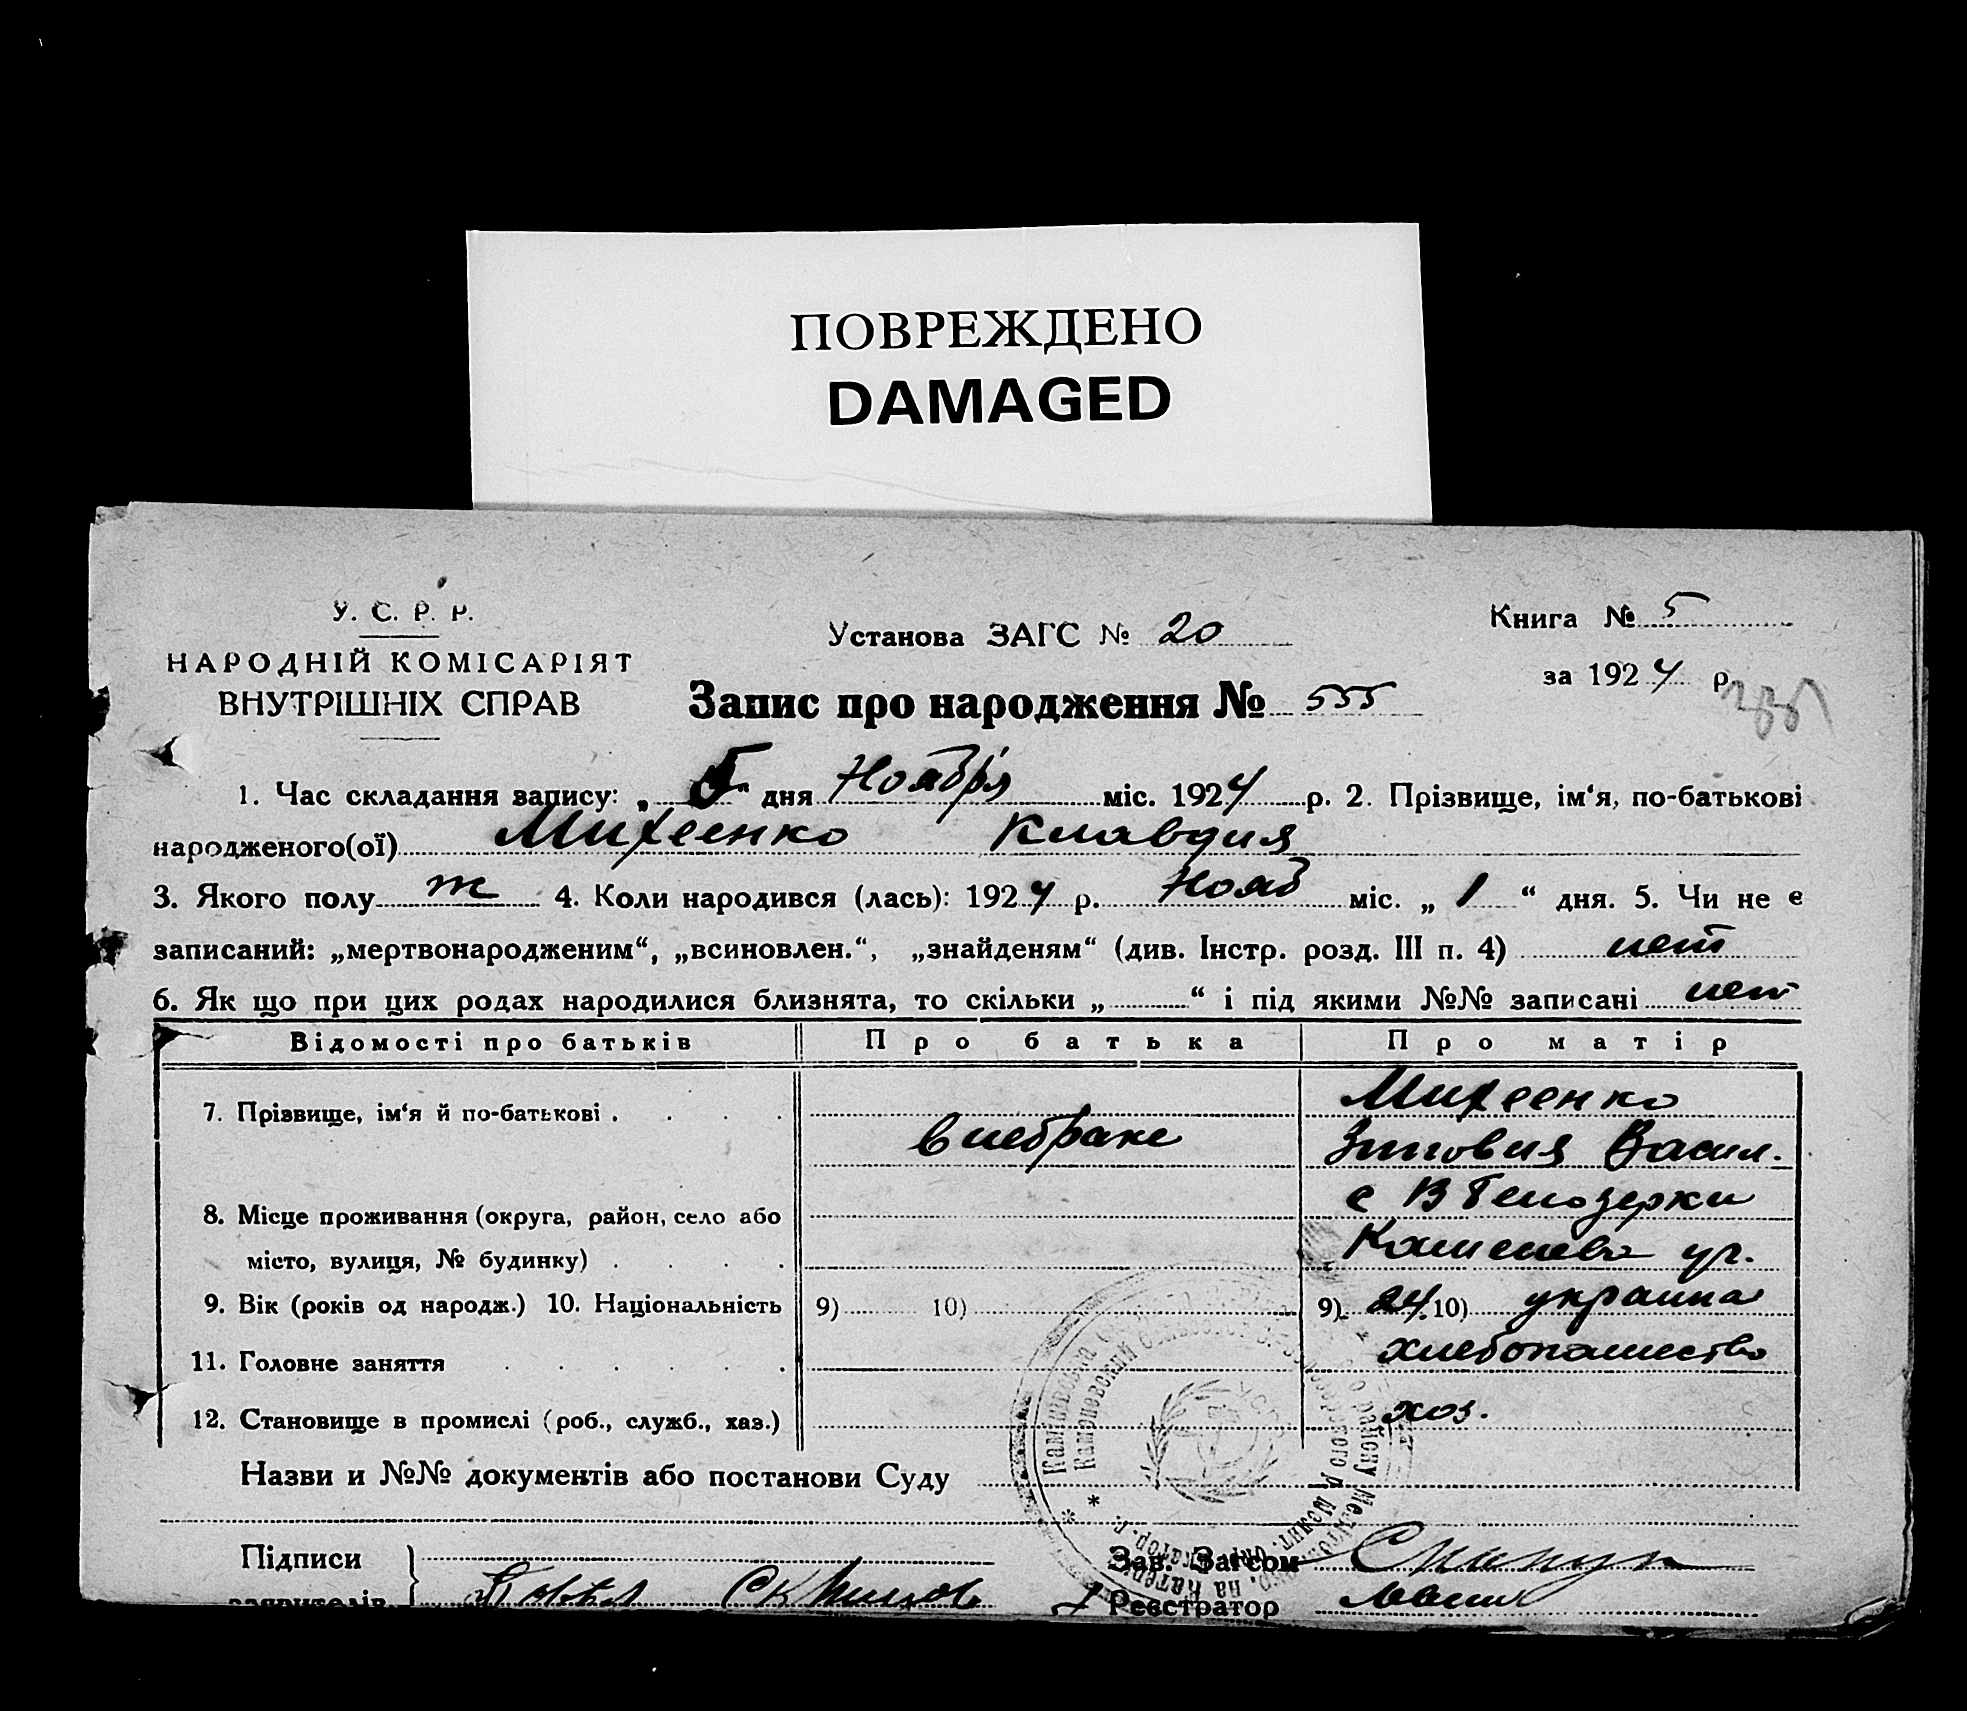 ПОВРЕЖДЕНО
DAMAGED
У. С. Р. Р.
НАРОДНІЙ КОМІСАРІЯТ
ВНУТРІШНІХ СПРАВ
Установа ЗАГС № 20
Книга № 5
за 1924 р.
Запис про народження № 555
1. Час складання запису: „5" дня Ноября міс. 1924 р. 2. Прізвище, ім‘я, по-батькові
народженого(ої) Михеенко Клавдия
3. Якого полу ж 4. Коли народився (лась): 1924 р. Нояб міс. „ 1 “ дня. 5. Чи не є
записаний: „мертвонародженим“, „всиновлен.“, „знайденям“ (див. Інстр. розд. III п. 4) нет
6. Як що при цих родах народилися близнята, то скільки „ “ і під якими №№ записані нет
Відомості про батьків Про батька Про матір
7. Прізвище, ім‘я й по-батькові . . . . Михеенко
внебраке Зиновия Васил.
8. Місце проживання (округа, район, село або с В Белозерки
місто, вулиця, № будинку) . . . . Каменева ул.
9. Вік (років од народж.) 10. Національність 9) 10) 9) 24. 10) украина
11. Головне заняття . . . . . . хлебопашество
12. Становище в промислі (роб., служб., хаз.) хоз.
Назви и №№ документів або постанови Суду
Підписи } Зав. Загсом
заявителів Реєстратор